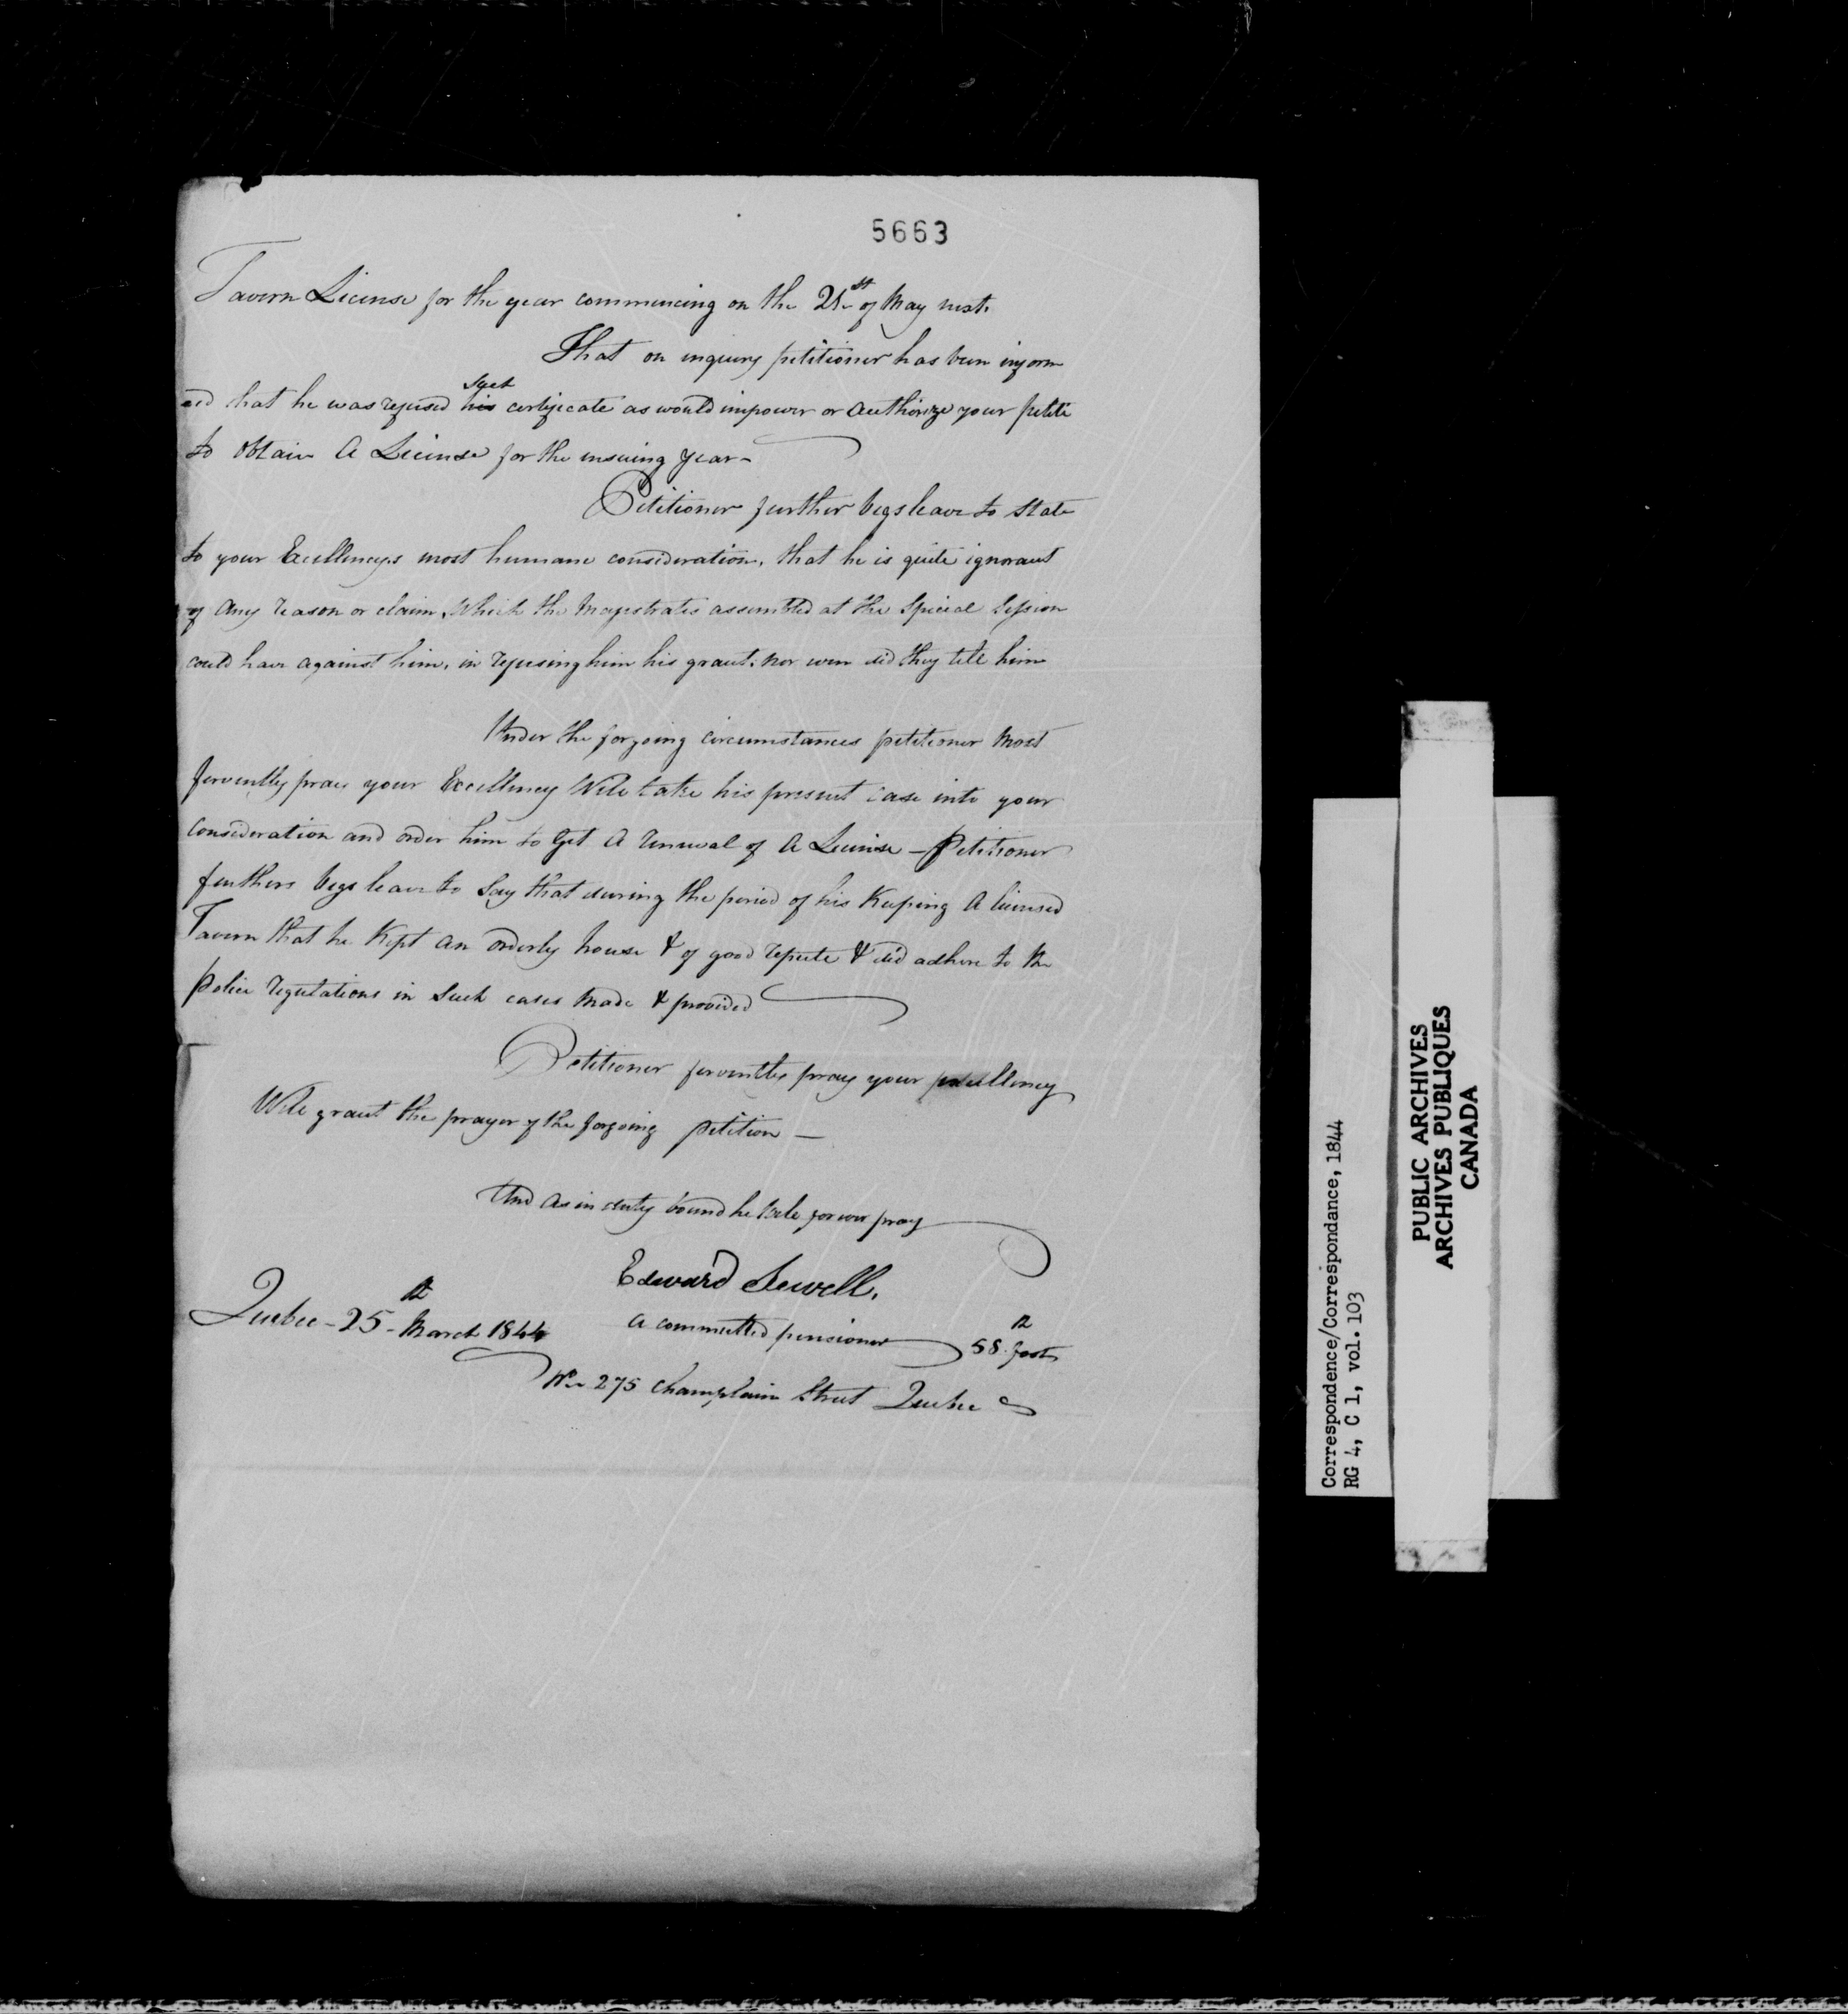 5663
Tavern License for the year commencing on the 21st of May next.
That on inquiry petitioner has been inform
ed that he was refused such his certificate as would impower or authorize your petiti
to obtain a License for the insuing year -
Petitioner further begs leave to state
to your Excellencys most humane consideration, that he is quite ignorant
of any reason or claim, which the Magistrates assembled at the Special Session
could have against him, in refusing him his grant. nor even did they tell him
Under the forgoing circumstances petitioner most
fervently prays your Excellency Will take his present case into your
consideration and order him to get a renewal of a License - Petitioner
further begs leave to say that during the period of his Keeping a licensed
Tavern that he Kept an orderly house & of good repute & did adhere to the
police regulations in such cases made & provided
Petitioner fervently prays your Excellency
Will grant the prayer of the forgoing petition —
And as in duty bound he will forever pray
Edward Sewell.
Quebec - 25th March 1844
a commutted pensioner 58th foot
No 275 Champlain Street Quebec
Correspondence/Correspondance, 1844
RG 4, C 1, vol. 103
PUBLIC ARCHIVES
ARCHIVES PUBLIQUES
CANADA